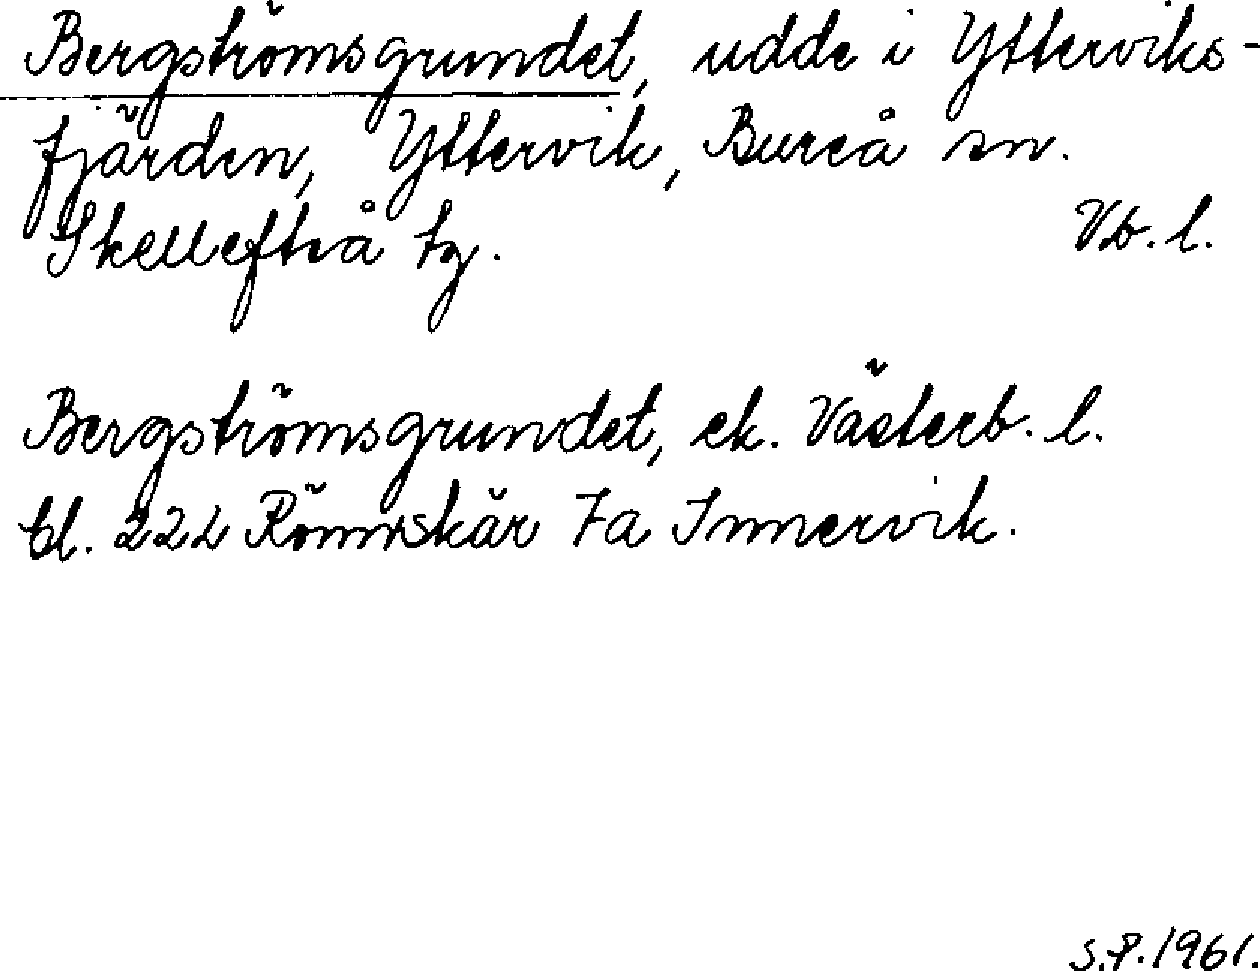 Bergströmsgrundet, udde i Ytterviks-
fjärden, Yttervik, Bureå sn.
Skellefteå tg. Vb. l.
Bergströmsgrundet, ek. Västerb. l.
bl. 222 Rönnskär 7a Innervik.
S.P. 1961.